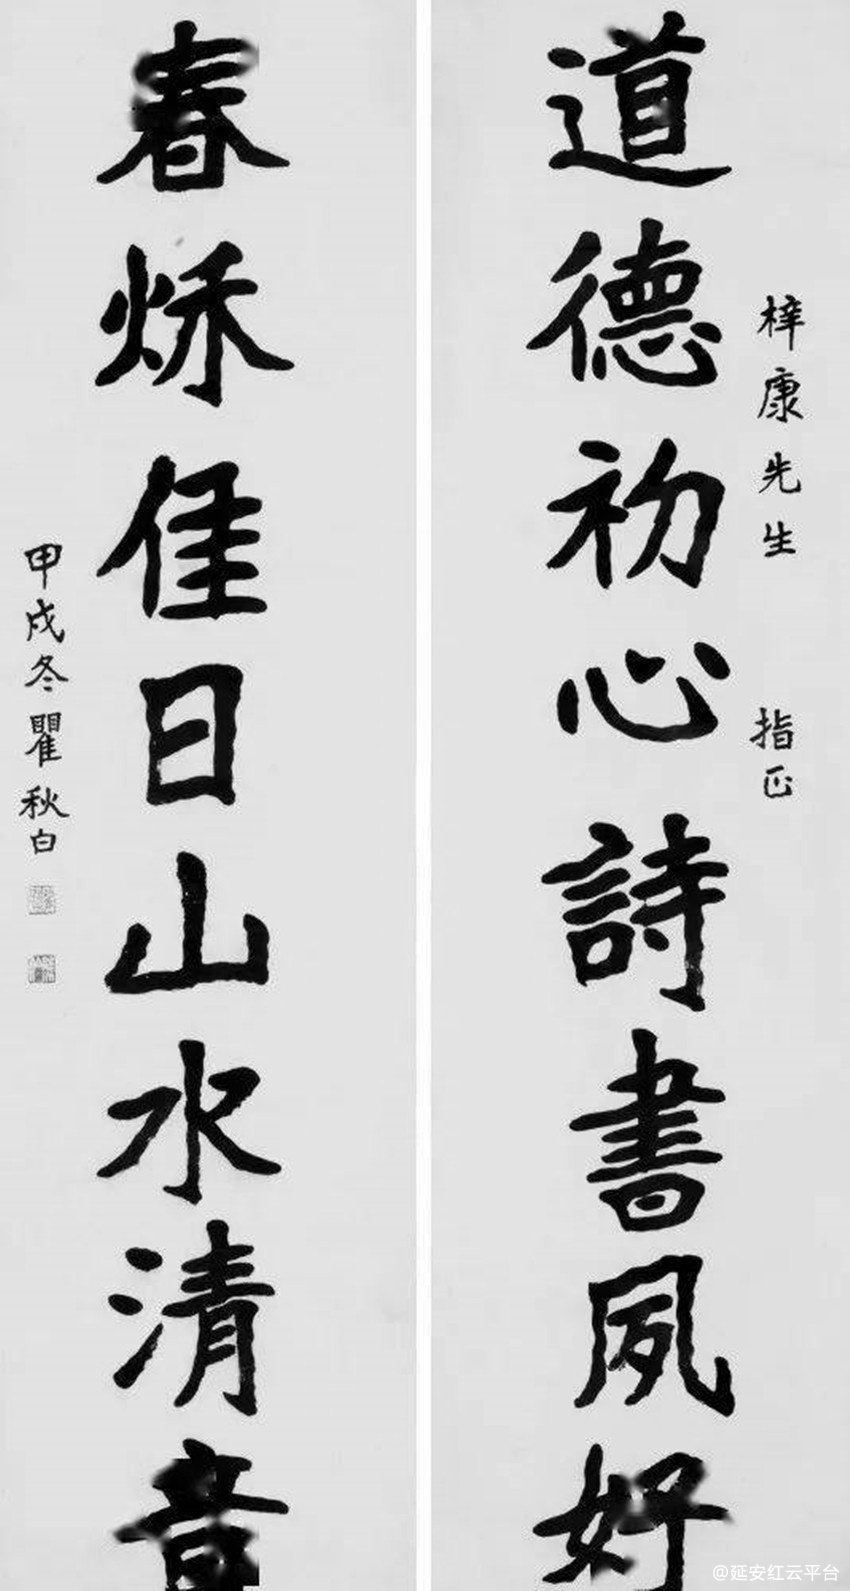 梓康先生 指正
道德初心詩書夙好
春秌佳日山水清音
甲戌冬瞿秋白
@延安红云平台